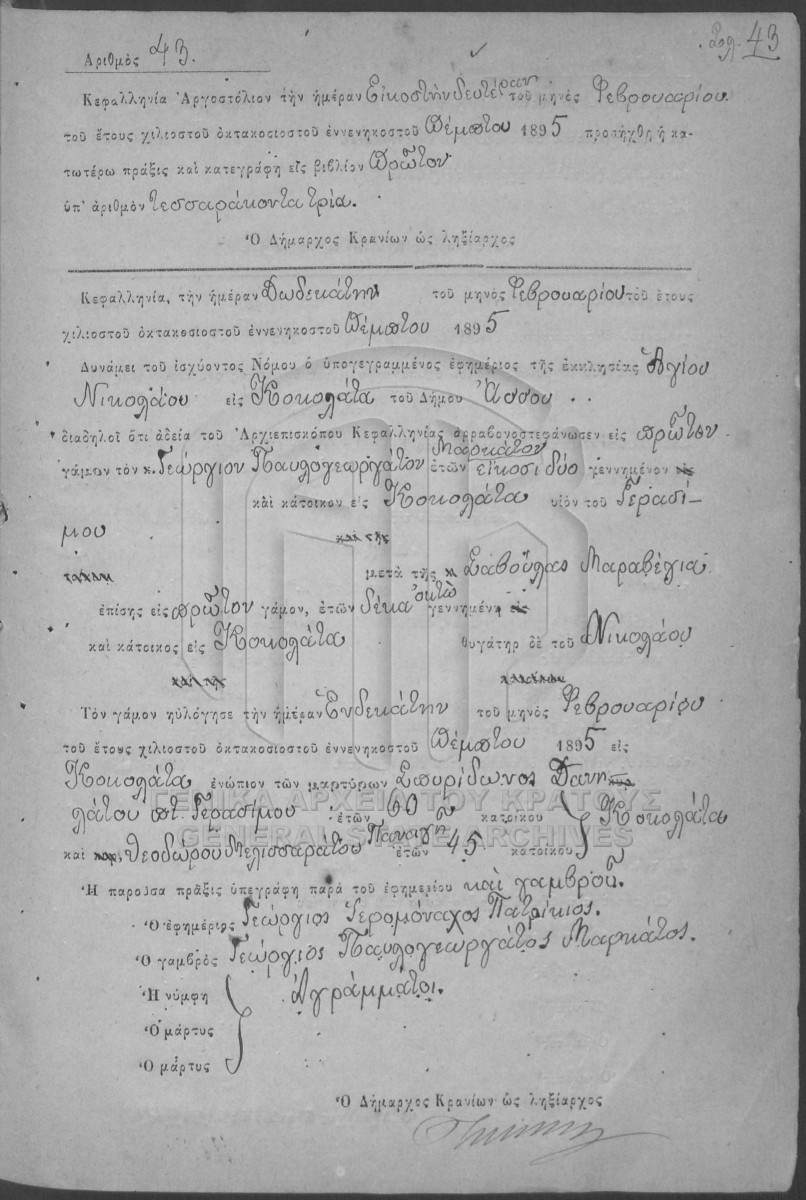 Σελ. 43
Ἀριθμὸς 43.
Κεφαλληνία Ἀργοστόλιον τὴν ἡμέραν Εἰκοστὴν δευτέραν τοῦ μηνὸς Φεβρουαρίου
τοῦ ἔτους χιλιοστοῦ ὀκτακοσιοστοῦ ἐννενηκοστοῦ Πέμπτου 1895 προσήχθη ἡ κα-
τωτέρω πρᾶξις καὶ κατεγράφη εἰς βιβλίον Πρῶτον
ὑπ' ἀριθμὸν τεσσαράκοντα τρία.
Ὁ Δήμαρχος Κρανίων ὡς ληξίαρχος
Κεφαλληνία, τὴν ἡμέραν Δωδεκάτην τοῦ μηνὸς Φεβρουαρίου τοῦ ἔτους
χιλιοστοῦ ὀκτακοσιοστοῦ ἐννενηκοστοῦ Πέμπτου 1895
Δυνάμει τοῦ ἰσχύοντος Νόμου ὁ ὑπογεγραμμένος ἐφημέριος τῆς ἐκκλησίας Ἁγίου
Νικολάου εἰς Κοκολάτα τοῦ Δήμου Ἄσσου
διαδηλοῖ ὅτι ἀδεία τοῦ Ἀρχιεπισκόπου Κεφαλληνίας ἀρραβονοστεφάνωσεν εἰς πρῶτον
Μαρκάτον
γάμον τὸν κ. Γεώργιον Παυλογεωργάτον ἐτῶν εἴκοσι δύο γεννημένον εἰς
καὶ κάτοικον εἰς Κοκολάτα υἱὸν τοῦ Γερασί-
μου καὶ τῆς
μετὰ τῆς κ Σαβούλας Μαραβέγια
ἐπίσης εἰς πρῶτον γάμον, ἐτῶν δέκα ὀκτὼ γεννημένη εἰς
καὶ κάτοικος εἰς Κοκολάτα θυγάτηρ δὲ τοῦ Νικολάου
καὶ τῆς
Τὸν γάμον ηὐλόγησε τὴν ἡμέραν Ἑνδεκάτην τοῦ μηνὸς Φεβρουαρίου
τοῦ ἔτους χιλιοστοῦ ὀκτακοσιοστοῦ ἐννενηκοστοῦ Πέμπτου 1895 εἰς
Κοκολάτα ἐνώπιον τῶν μαρτύρων Σπυρίδωνος Δανη
λάτου ποτ. Γερασίμου ἐτῶν 60 κατοίκου Κοκολάτα
ΓΕΝΙΚΑ ΑΡΧΕΙΑ ΤΟΥ ΚΡΑΤΟΥΣ
GENERAL STATE ARCHIVES
καὶ Θεοδώρου Μελισσαράτου Παναγῆ ἐτῶν 45 κατοίκου
Ἡ παροῦσα πρᾶξις ὑπεγράφη παρὰ τοῦ ἐφημερίου καὶ γαμβροῦ.
Ὁ ἐφημέριος Γεώργιος Ἱερομόναχος Πατρίκιος.
Ὁ γαμβρὸς Γεώργιος Παυλογεωργάτος Μαρκάτος.
Ἡ νύμφη Ἀγράμματοι.
Ὁ μάρτυς
Ὁ μάρτυς
Ὁ Δήμαρχος Κρανίων ὡς ληξίαρχος